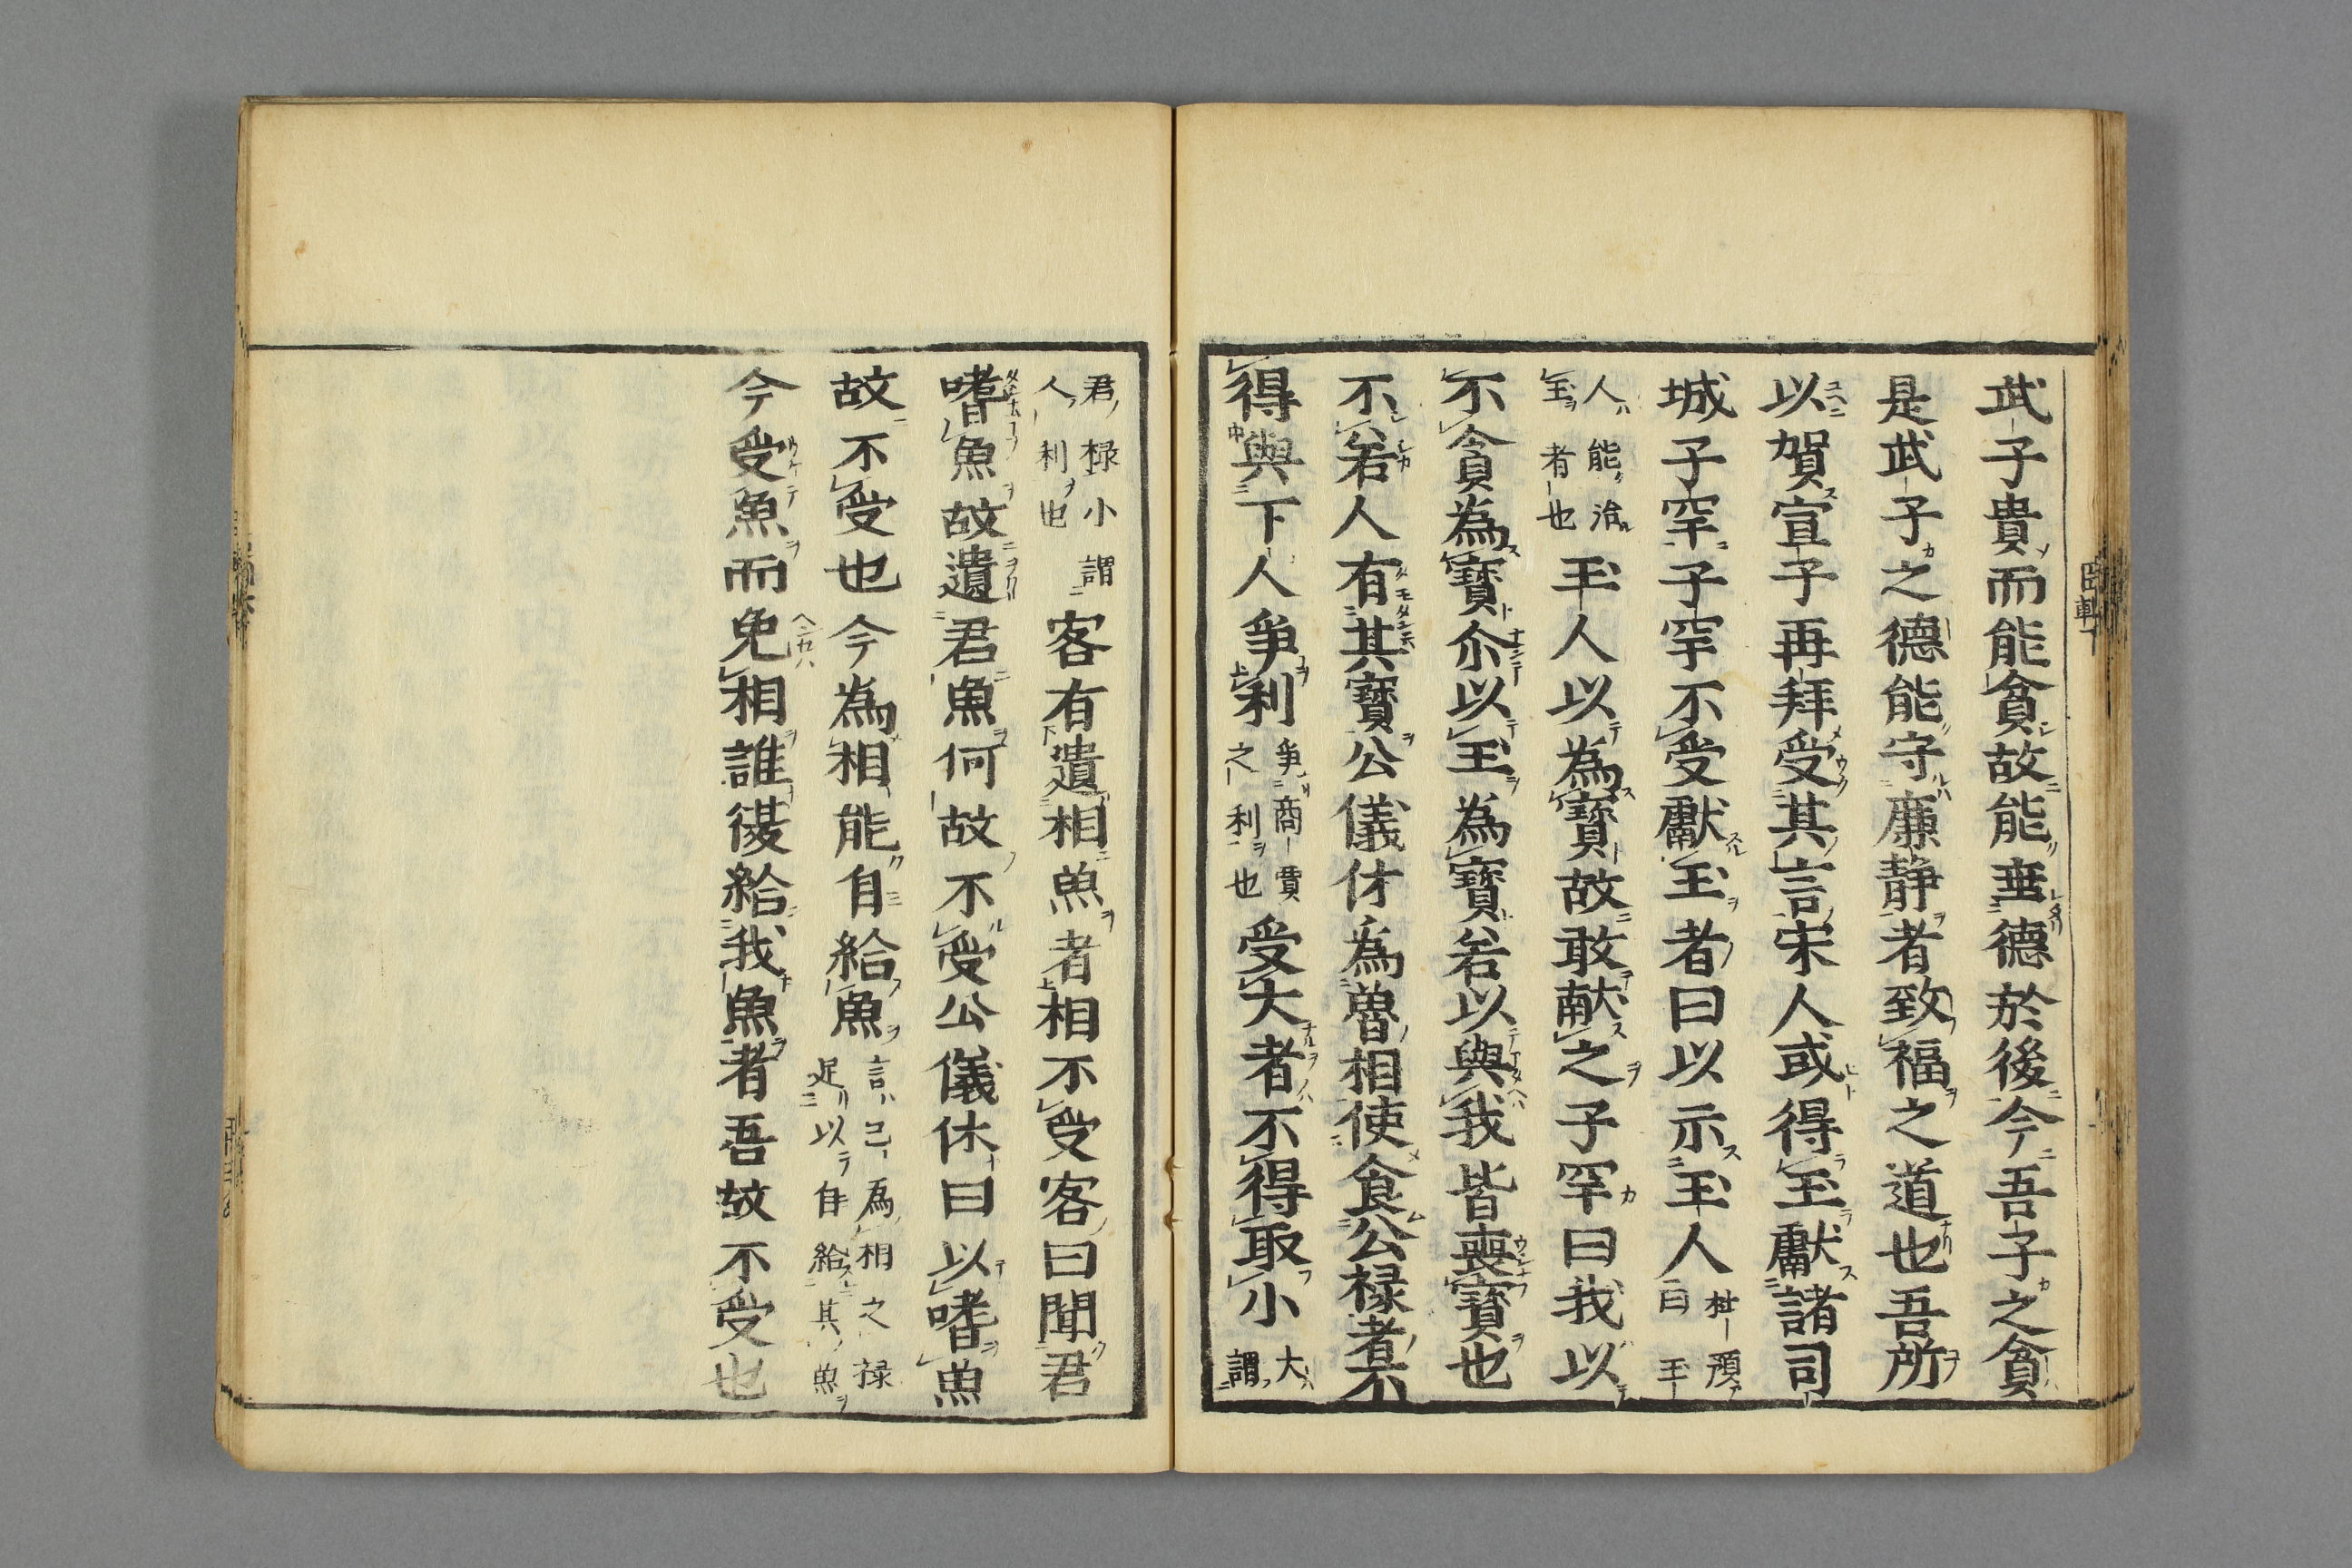 武子貴而能貪故能垂德於後今吾子之貪
是武子之德能守廉静者致福之道也吾所
以賀宣子再拜受其言宋人或得玉獻諸司
城子罕子罕不受獻玉者曰以示玉人杜預曰玉
人能治玉者也玉人以為寶故敢献之子罕曰我以
不貪為寶尒以玉為寶若以與我皆喪寶也
不若人有其寶公儀休為魯相使食公禄者不
得與下人爭利爭商賈之利也受大者不得取小大謂
君禄小謂人利也客有遺相魚者相不受客曰聞君
嗜魚故遺君魚何故不受公儀休曰以嗜魚
故不受也今為相能自給魚言己為相之禄足以自給其魚
今受魚而免相誰復給我魚者吾故不受也